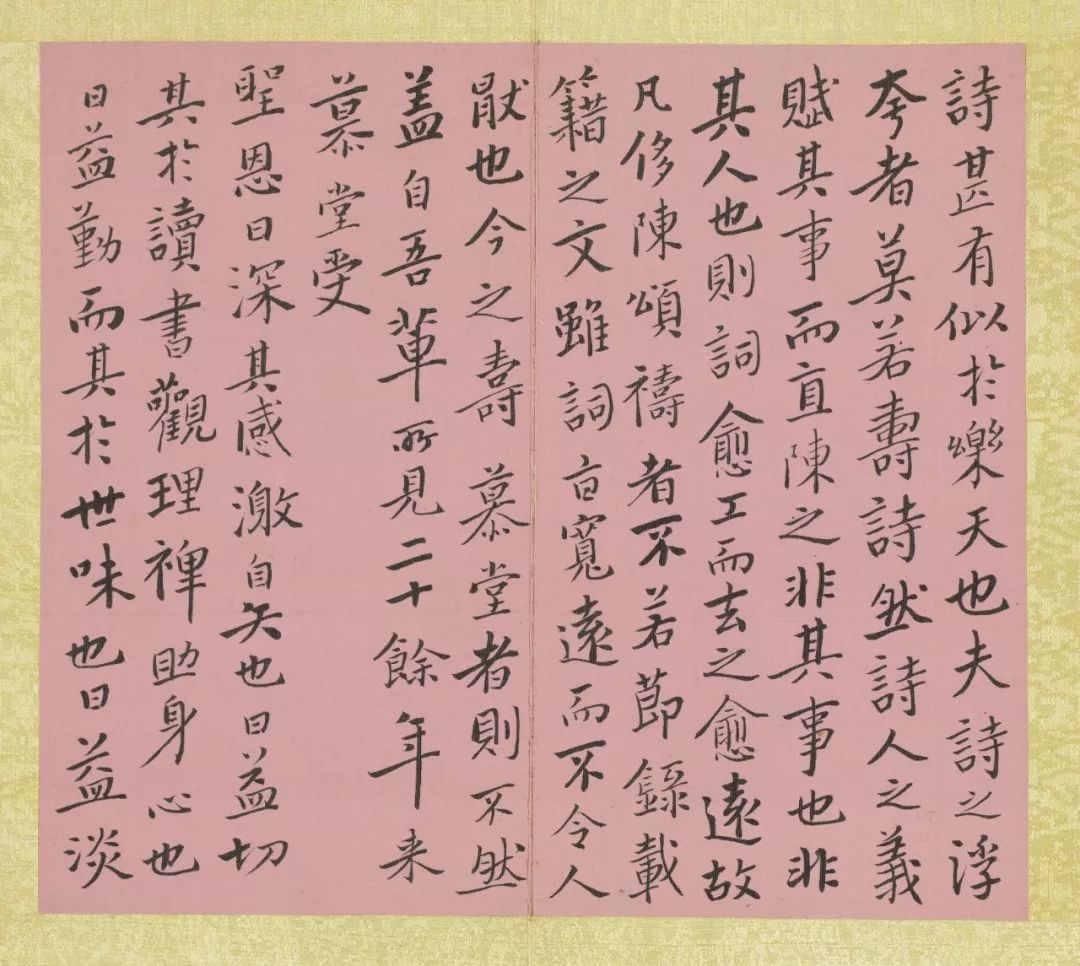 詩甚有似於樂天也夫詩之浮
夸者莫若壽詩然詩人之義
賦其事而直陳之非其事也非
其人也則詞愈工而去之愈遠故
凡侈陳頌禱者不若節錄載
籍之文雖詞旨寬遠而不令人
猒也今之壽慕堂者則不然
盖自吾輩所見二十餘年来
慕堂受
聖恩日深其感激自矢也日益切
其於讀書觀理裨助身心也
日益勤而其於世味也日益淡